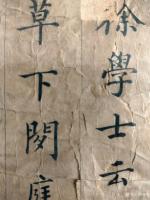 徐學士云
草下閔庭